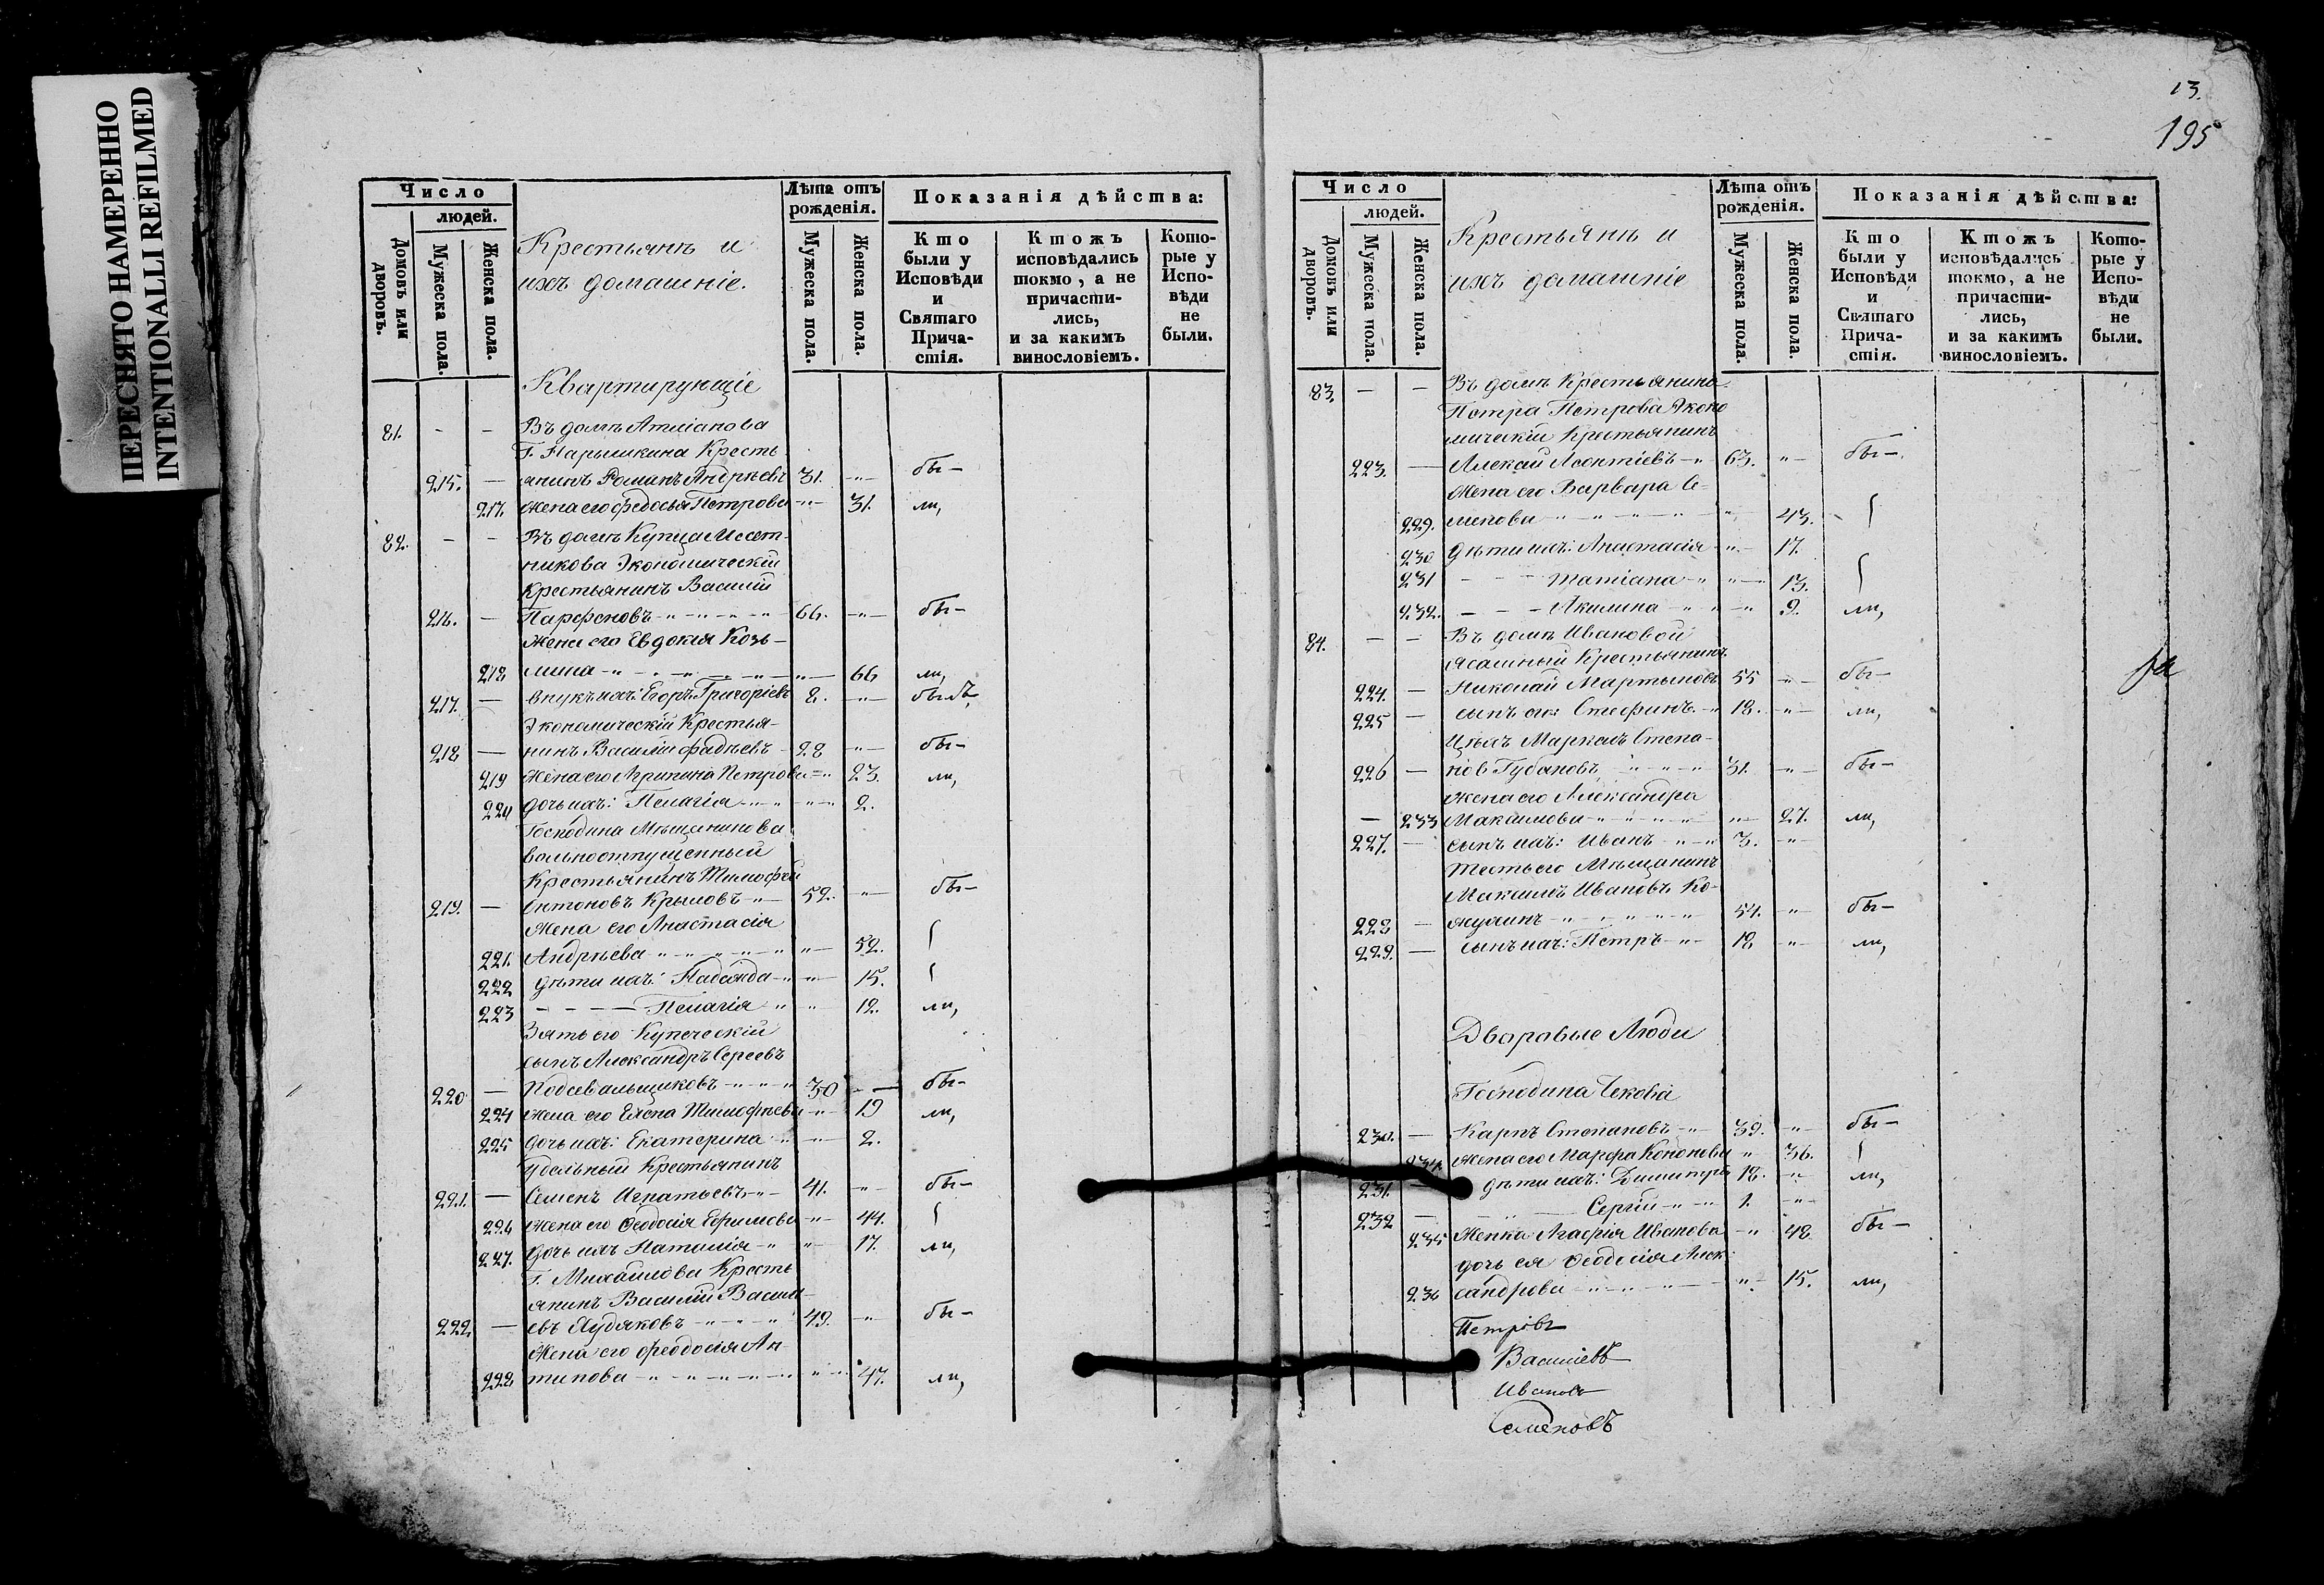 ПЕРЕСНЯТО НАМЕРЕННО
INTENTIONALLI REFILMED
Число
людей.
Домовъ или дворовъ.
Мужеска пола.
Женска пола.
Крестьянъ и
ихъ домашніе.
Лѣта отъ рожденія.
Мужеска пола.
Женска пола.
Показанія дѣйства:
Кто были у Исповѣди и Святаго Прича-стія.
Ктожъ исповѣдались токмо, а не причасти-лись, и за какимъ винословіемъ.
Кото-рые у Испо-вѣди не были.
Квартирующіе
81. - - Въ домѣ
Г. Нарышкина Кресть
215. — янинъ Романъ Андрѣевъ 31. -"- бы-
217. жена его Федосья Петрова -"- 31. ли,
82. - - Въ домѣ Купца
никова Экономическій
Крестьянинъ Василій
216. — Парфеновъ 66. -"- бы-
Жена его Евдокія Козь-
218 мина 66 ли,
217. — внукъ ихъ: Егоръ Григоріевъ 2. -"- былъ,
Экономическій Крестья-
218 — нинъ Василій Фадѣевъ 28 -"- бы-
219 жена его Агрипина Петрова 23. ли,
220 дочь ихъ: Пелагія 2.
Господина Мѣщанинова
вольноотпущенный
Крестьянинъ Тимофей
219. — Антоновъ Крыловъ 52. " бы-
Жена его Анастасія
221. Андрѣева 52.
222 дѣти ихъ: Надежда 15.
223 - - - Пелагія 12. ли,
Зять его Купеческій
сынъ Александръ Сергеевъ
220 — Подсевальщиковъ 30 - бы-
224 жена его Елена Тимофѣева 19 ли,
225 дочь ихъ: Екатерина 2.
Удѣльный Крестьянинъ
221. — Семенъ Игнатьевъ 41. " бы-
226 жена его Ѳеодосія Ефимова 44.
227. дочь ихъ Наталія 17. ли,
Г. Михайлова Кресть
янинъ Василій Василь-
222. — евъ Худяковъ 49. " бы-
Жена его Феодосія Ан-
228 типова 47. ли,
13.
195
Число
людей.
Домовъ или дворовъ.
Мужеска пола.
Женска пола.
Крестьянъ и
ихъ домашніе
Лѣта отъ рожденія.
Мужеска пола.
Женска пола.
Показанія дѣйства:
Кто были у Исповѣди и Святаго Прича-стія.
Ктожъ исповѣдались токмо, а не причасти-лись, и за какимъ винословіемъ.
Кото-рые у Испо-вѣди не были.
83. — — Въ домѣ Крестьянина
Петра Петрова Эконо
мическій Крестьянинъ
223. — Алексѣй Леонтіевъ 63. " бы-
Жена его Варвара Се-
229. менова 43.
230 дѣти ихъ: Анастасія 17.
231 - - - Татіана 13.
232. - - - Акилина 9. ли,
84. — — Въ домѣ Ивановой
Ясашный Крестьянинъ
224. — Николай Мартыновъ 55 " бы-
225 — сынъ его: Стефанъ 18. " ли,
Маркелъ Степа-
226 — новъ Губановъ 31. " бы-
жена его Александра
— 233 Максимова 27. ли,
227. — сынъ ихъ: Иванъ 3. "
тесть его Мѣщанинъ
Максимъ Ивановъ Ко-
228 — 54. " бы-
229. — сынъ ихъ: Петръ 18 " ли,
Дворовые Люди
Господина Чекова
230. — Карпъ Степановъ 39. " бы-
234. жена его Марфа Кононова " 36.
231. — дѣти ихъ: Димитрій 12. " ли,
232 — Сергій 1. "
235 Женка Агафія Иванова " 48 бы-
дочь ея Ѳеодосія Алек-
236 сандрова " 15. ли,
Петровъ
Васильевъ
Ивановъ
Семеновъ